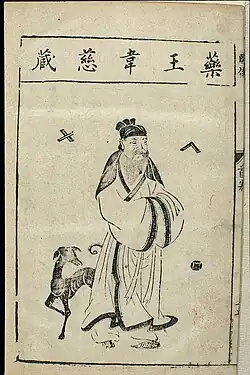 藥王韋慈藏